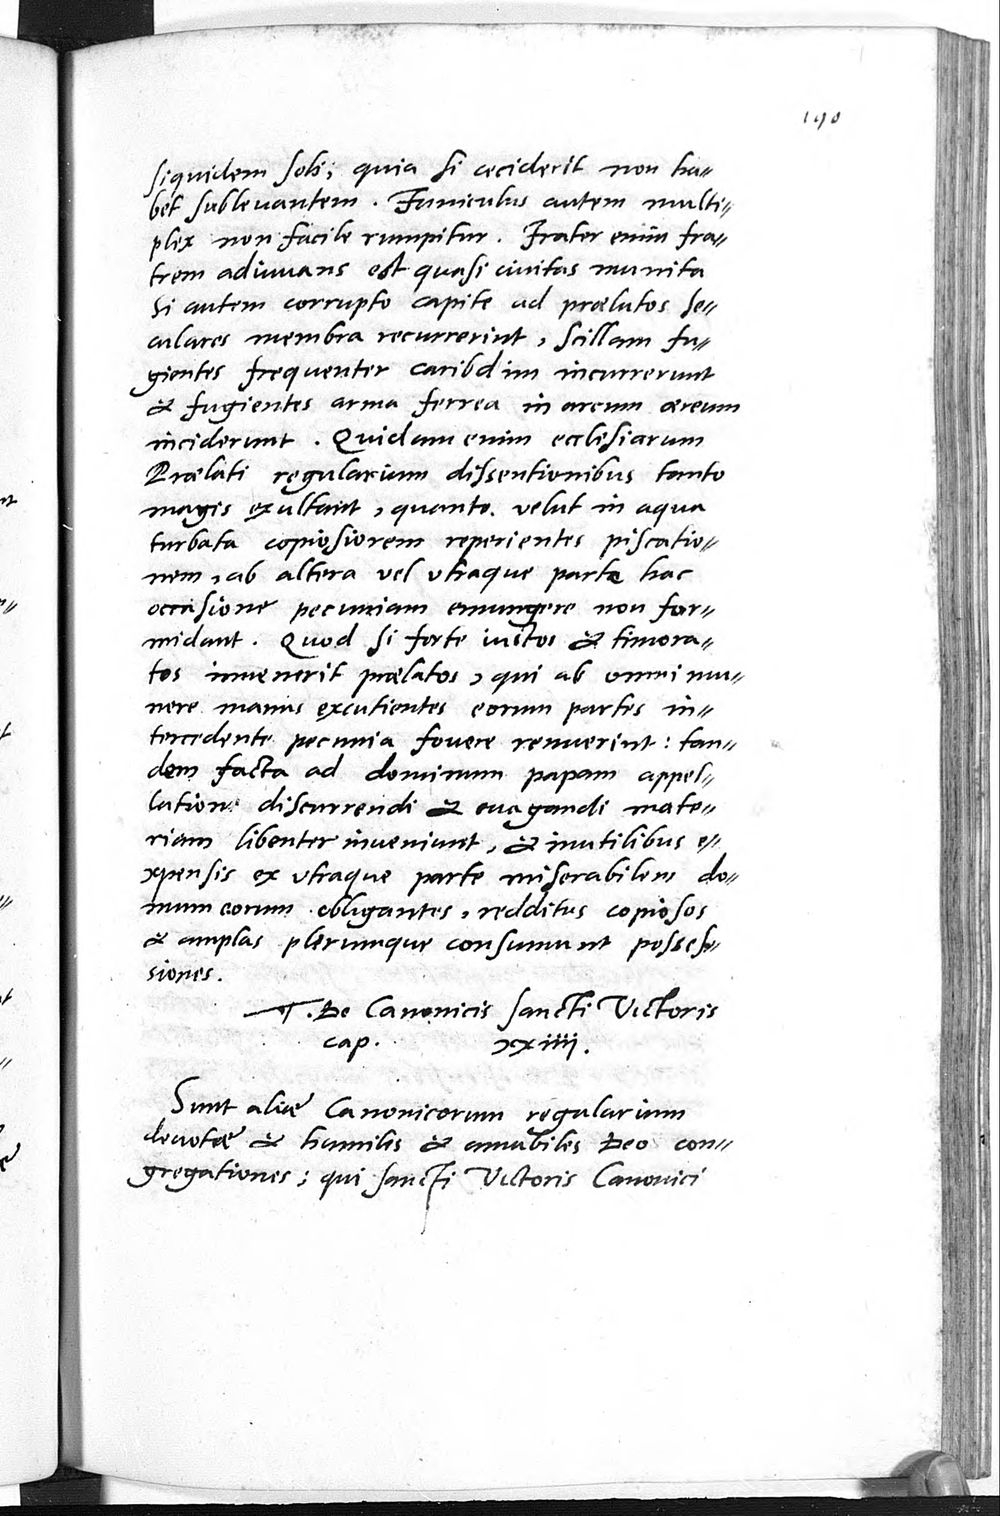 190
siquidem soli; quia si ceciderit non ha〃
bet subleuantem. Funiculus autem multi〃
plex non facile rumpitur. Frater enim fra〃
trem adiuuans est quasi ciuitas munita
Si autem corrupto capite ad prælatos se〃
culares membra recurrerint, scillam fu〃
gientes frequenter caribdim incurrerunt
& fugientes arma ferrea in arcum æreum
inciderunt. Quidam enim ecclesiarum
Prælati regularium dissentionibus tanto
magis exultant, quanto. velut in aqua
turbata copiosiorem reperientes piscatio〃
nem, ab altera vel vtraque parte hac
occasione pecuniam emungere non for〃
midant. Quod si forte iustos & timora〃
tos inuenerit prælatos, qui ab omni mu〃
nere manus excutientes eorum partes in〃
tercedente pecunia fouere renuerint: tan〃
dem facta ad dominum papam appel〃
latione discurrendi & euagandi mate〃
riam libenter inueniunt, & inutilibus e〃
xpensis ex vtraque parte miserabilem do〃
mum eorum obligantes, redditus copiosos
& amplas plerumque consumunt posses〃
siones.
De Canonicis sancti Victoris
cap. xxiiii.
Sunt aliæ Canonicorum regularium
deuotæ & humilis & amabiles Deo con〃
gregationes; qui sancti Victoris Canonici